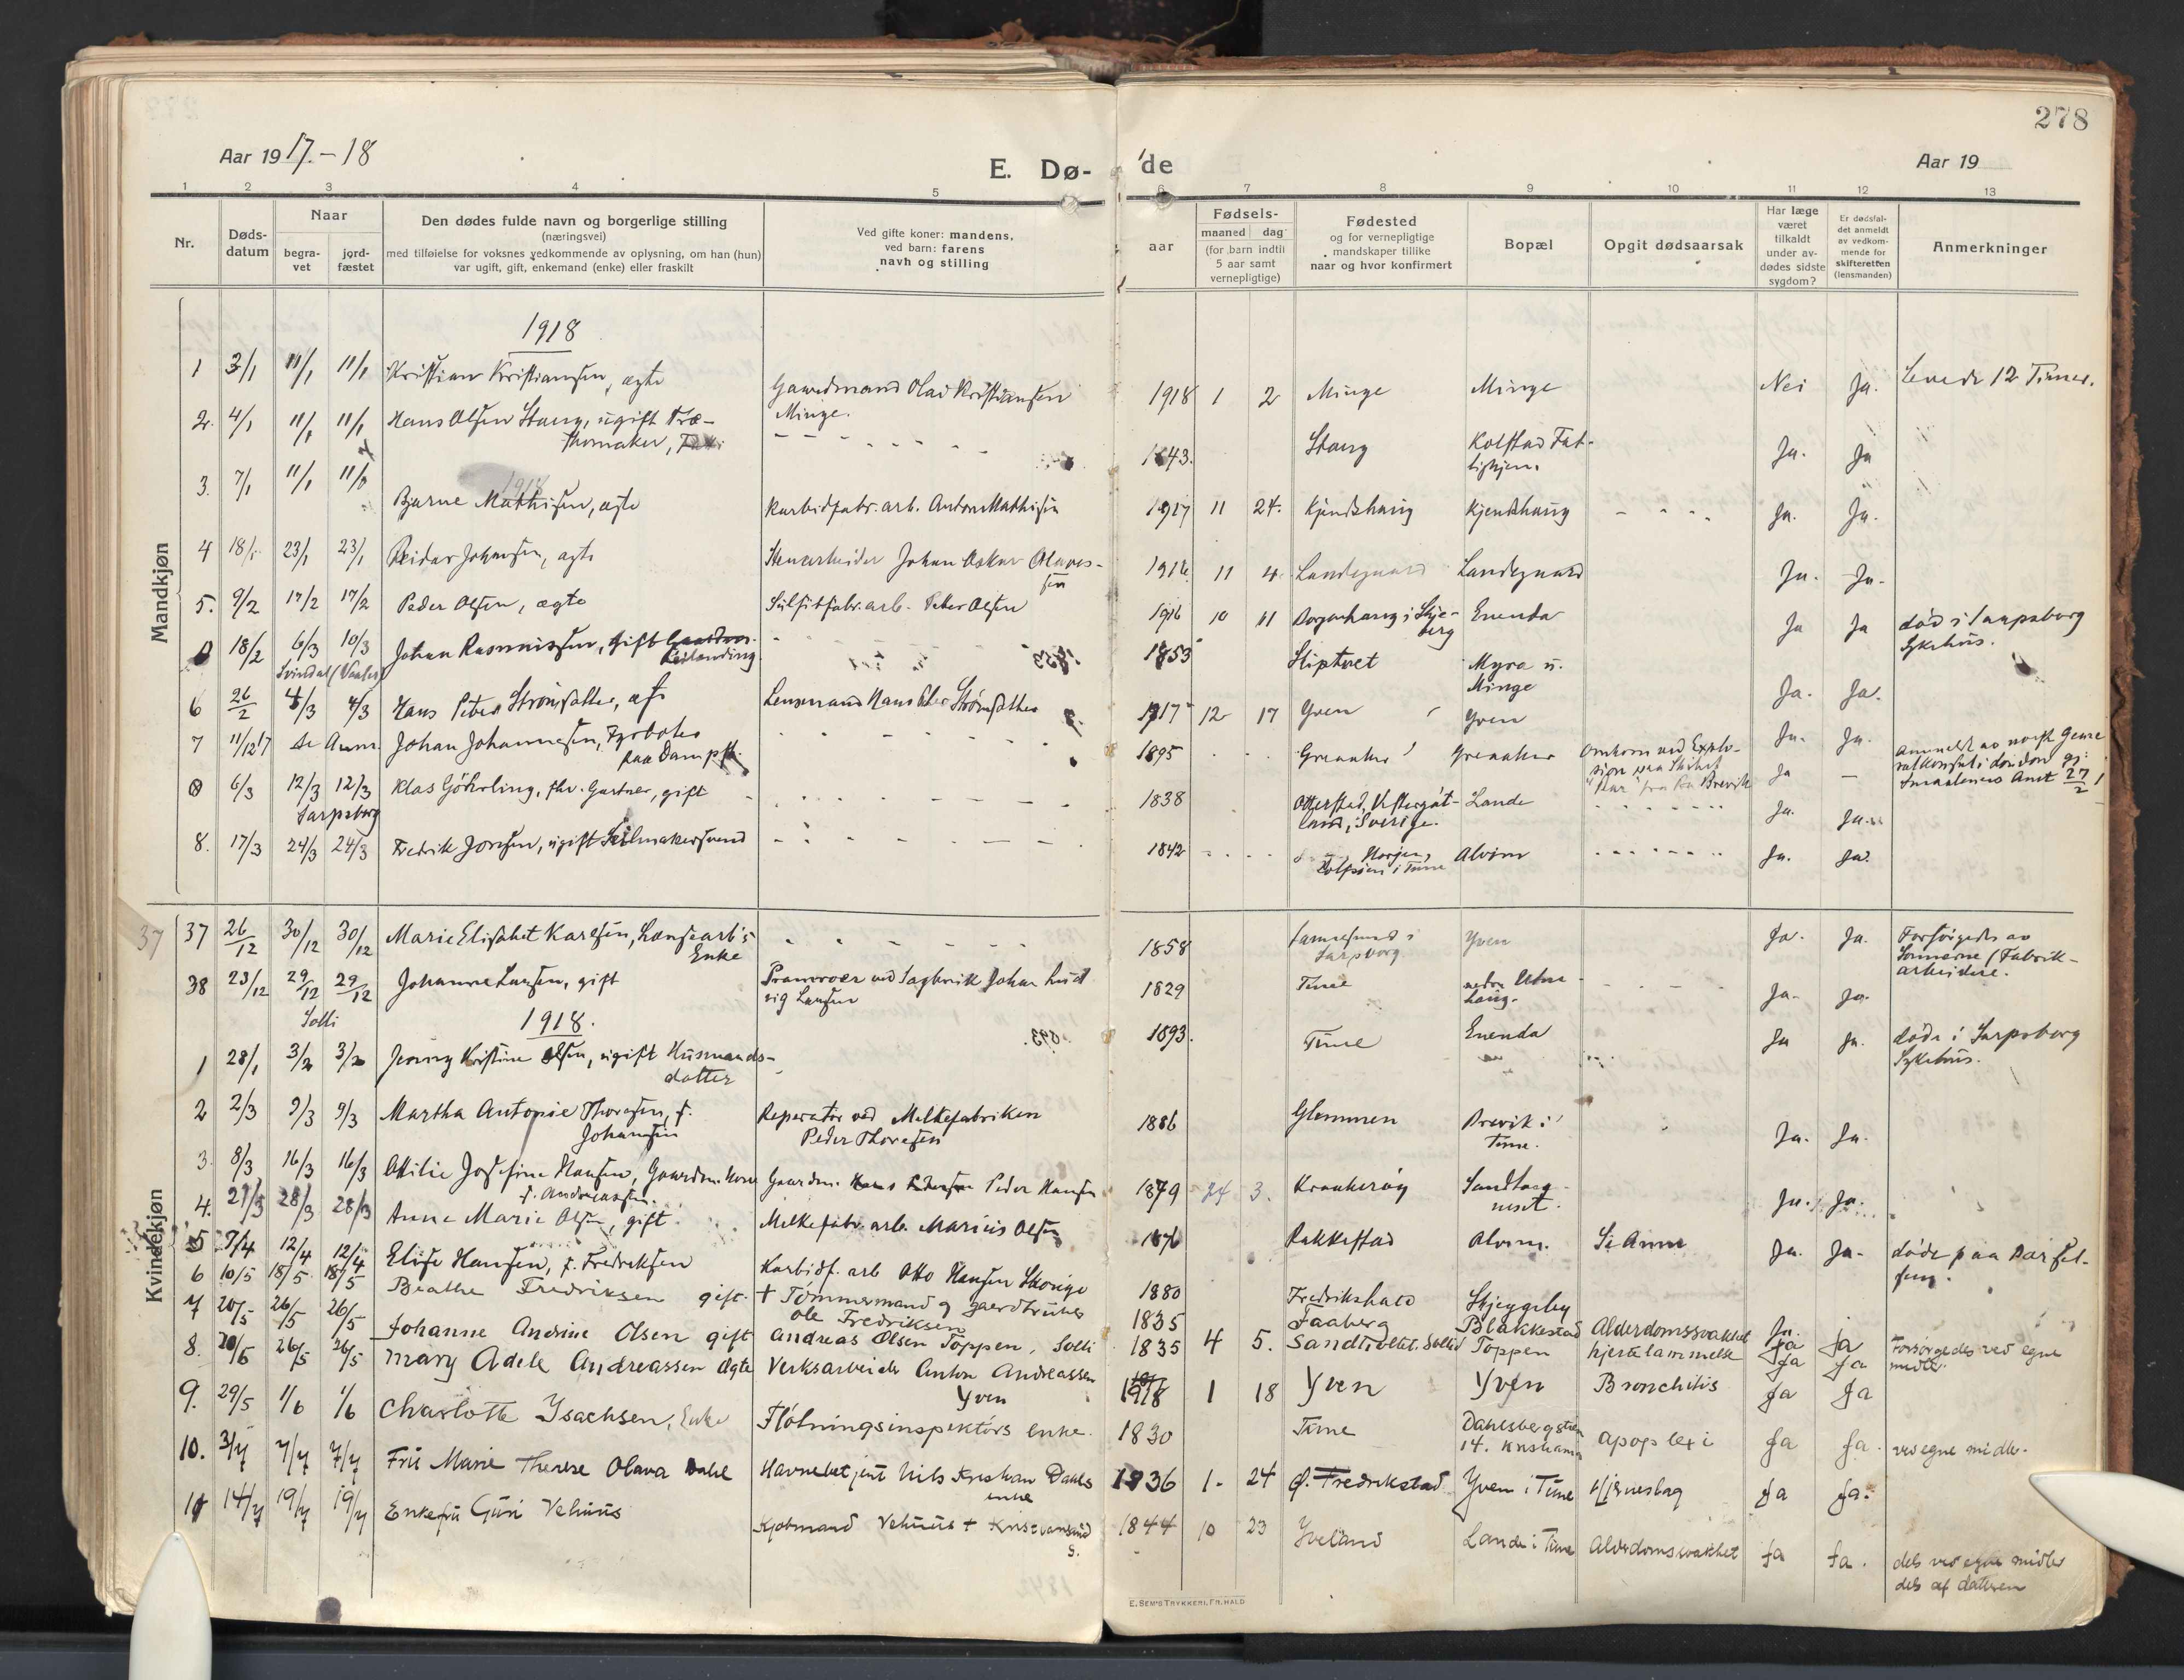 278
Aar 1917.-18
E. Dø-
de
Aar 19
1 2 3 4 5 6 7 8 9 10 11 12 13
Nr.
Døds-
datum
Naar
begra-
vet
jord-
fæstet
Den dødes fulde navn og borgerlige stilling
(næringsvei)
med tilføielse for voksnes vedkommende av oplysning, om han (hun)
var ugift, gift, enkemand (enke) eller fraskilt
Ved gifte koner: mandens,
ved barn: farens
navn og stilling
aar
Fødsels-
maaned dag
(for barn indtil
5 aar samt
vernepligtige)
Fødested
og for vernepligtige
mandskaper tillike
naar og hvor konfirmert
Bopæl
Opgit dødsaarsak
Har læge
været
tilkaldt
under av-
dødes sidste
sygdom?
Er dødsfal-
det anmeldt
av vedkom-
mende for
skifteretten
(lensmanden)
Anmerkninger
Mandkjøn
1918
1 3/1 11/1 11/1 Kristian Kristiansen, ægte Gaardmand Olav Kristiansen 1918 1 2 Minge Minge Nei Ja. Levede 12 Timer.
Minge.
2. 4/1 11/1 11/1 Hans Olsen Stang, ugift Træ- 1843. Stang Kolstad Fat- Ja. Ja
skomaker,
tighjem.
3. 7/1 11/1 11/1 Bjarne Mathisen, ægte Karbidfabr. arb. Anton Mathisen 1917 11 24. Kjendshaug Kjendshaug Ja. Ja.
4 18/1 23/1 23/1 Reidar Johansen, ægte Stenarbeider Johan Oskar 11 4 Landegaard Landegaard Ja. Ja.
5. 9/2 17/2 17/2 Peder Olsen, ægte Sulfitfabr. arb. Peter Olsen 1916 10 11 i Skje- Enenda Ja Ja død i Sarpsborg
berg
Sykehus.
18/2 6/3 10/3 Johan Rasmussen, gift 1853 Skiptvet Myra u. Ja. Ja.
Svindal (Vaaler)
Minge
6 26/2 4/3 4/3 Hans Peter Strømsæther, Lensmand Hans Peter Strømsæther 1917 12 17 Yven Yven Ja. Ja.
7 11/12 17 Se Anm. Johan Johannesen, Fyrbøter 1895 Greaaker Greaaker Omkom ved Explo- Ja — Anmeldt av norsk Gene
paa Dampsk.
sion paa Skibet
ralkonsul i London gj.
fra Brevik
Smaalenenes Amt 27/2
6/3 12/3 12/3 Klas Göthrling, fhv. Gartner, gift 1838 Otterstad, Vestergöt- Lande Ja. Ja.
Sarpsborg
land, Sverige.
8. 17/3 24/3 24/3 Fredrik Jonsen, ugift Seilmakersvend 1842 Alvim Ja. Ja.
i Tune
Kvindekjøn
37 37 26/12 30/12 30/12 Marie Elisabet Karlsen, Lænsearb's 1858 Yven Ja. Ja. Forsørgedes av
Enke
Sarpsborg
Sønnerne (Fabrik-
arbeidere.
38 23/12 29/12 29/12 Johanne Larsen, gift Pramroer ved Sagbruk Johan Lud 1829 Tune nedre Ja. Ja.
vig Larsen
haug.
Solli
1918.
1 28/1 3/2 3/2 Jenny Kristine Olsen, ugift Husmands- 1893. Tune Enenda Ja Ja. døde i Sarpsborg
datter
Sykehus.
2 2/3 9/3 9/3 Martha Antonie Thoresen, f. Reperatør ved Melkefabriken 1886 Glemmen Brevik i Ja. Ja.
Johansen
Peder Thoresen
Tune.
3. 8/3 16/3 16/3 Ottilie Josefine Hansen, Gaardm. Kone Gaardm. Peder Hansen 1879 24 3. Kraakerøy Sandtang- Ja. Ja.
f. Andreassen.
neset.
4. 21/3 28/3 28/3 Anne Marie Olsen, gift. Melkefabr. arb. Marius Olsen 1876 Rakkestad Alvim. Se Anm Ja. Ja. døde paa Barsel-
seng.
5 7/4 12/4 12/4 Elise Hansen, f. Fredriksen Karbidf. arb Otto Hansen Skorige 1880 Fredrikshald Skjeggeby Ja.
6 10/5 18/5 18/5 Beathe Fredriksen gift. + Tømmermand og gaardbruker 1835 Faaberg Blakkestad Alderdomssvakhet Ja Ja Forsørgedes ved egne
Ole Fredriksen
midler.
7 20/5 26/5 26/5 Johanne Andrine Olsen gift Andreas Olsen Toppen, Solli 1835 4 5. Sandtvetet. Solli Toppen hjertelammelse Ja Ja
8. 20/5 26/5 26/5 Mary Adele Andreassen ægte Verksarbeider Anton Andreassen 1918 1 18 Yven Yven Bronchitis Ja Ja
Yven
9. 29/5 1/6 1/6 Charlotte Ysachsen, Enke Fløtningsinspektørs enke. 1830 Tune Apoplexi Ja Ja. ved egne midler.
14.
10. 3/7 7/7 7/7 Fru Marie Therese Olava Dahl Havnebetjent Nils Kristian Dahls 1836 1. 24 Ø. Fredrikstad Yven i Tune Hjerneslag Ja Ja.
enke
11 14/7 19/7 19/7 Enkefru Guri Vehuus Kjøbmand Vehuus + Kristiansand 1844 10 23 Iveland Lande i Tune Alderdomssvakhet Ja Ja. dels ved egne midler
S.
dels af datteren
E. SEM'S TRYKKERI. FR. HALD